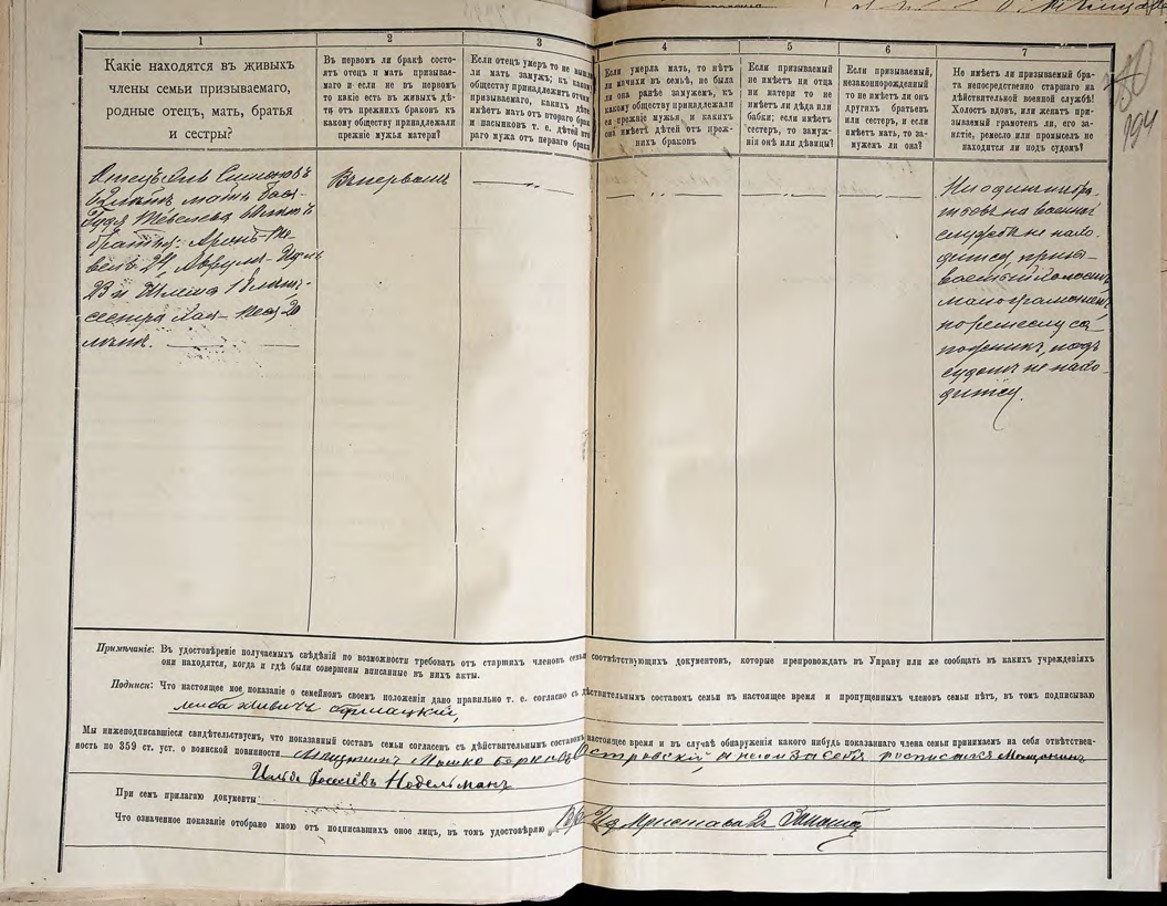 1
2
3
4
5
6
7
Какіе находятся въ живыхъ
члены семьи призываемаго,
родные отецъ, мать, братья
и сестры?
Въ первомъ ли бракѣ состо-
ятъ отецъ и мать призывае-
маго и если не въ первомъ
то какіе есть въ живыхъ дѣ-
ти отъ прежнихъ браковъ къ
какому обществу принадлежали
прежніе мужья матери?
Если отецъ умеръ то не вышла
ли мать замужъ; къ какому
обществу принадлежитъ отчимъ
призываемаго, какихъ дѣтей
имѣетъ мать отъ втораго брака
и пасынковъ т. е. дѣтей вто
раго мужа отъ перваго брака
Если умерла мать, то нѣтъ
ли мачихи въ семьѣ, не была
ли она ранѣе замужемъ, къ
какому обществу принадлежали
ея прежніе мужья и какихъ
они имѣетъ дѣтей отъ преж-
нихъ браковъ
Если призываемый
не имѣетъ ни отца
ни матери то не
имѣетъ ли дѣда или
бабки; если имѣетъ
сестеръ, то замуж-
нія онѣ или дѣвицы?
Если призываемый,
незаконнорожденный
то не имѣетъ ли онъ
другихъ братьевъ
или сестеръ, и если
имѣетъ мать, то за-
мужемъ ли она?
Не имѣетъ ли призываемый бра-
та непосредственно старшаго на
дѣйствительной военной службѣ!
Холостъ вдовъ, или женатъ при-
зываемый грамотенъ ли, его за-
нятіе, ремесло или промыселъ не
находится ли подъ судомъ?
194
Отецъ
лѣтъ мать Бася-
братья: Аронъ-
24,
23 и Шлема 18 лѣтъ.
сестра Хая- 20
лѣтъ.
Въ первомъ
Ни одинъ изъ бра-
тьевъ на военной
службѣ не нахо-
дится, призы-
ваемый холостъ,
малограмотенъ,
по ремеслу са-
пожникъ, подъ
судомъ не нахо-
дится.
Примѣчаніе: Въ удостовѣреніе получаемыхъ свѣдѣній по возможности требовать отъ старшихъ членовъ семьи соотвѣтствующихъ документовъ, которые препровождать въ Управу или же сообщать въ какихъ учрежденіяхъ
они находятся, когда и гдѣ были совершены вписанные въ нихъ акты.
Подписи: Что настоящее мое показаніе о семейномъ своемъ положеніи дано правильно т. е. согласно съ дѣйствительнымъ составомъ семьи въ настоящее время и пропущенныхъ членовъ семьи нѣтъ, въ томъ подписываю
Мы нижеподписавшіеся свидѣтельствуемъ, что показанный составъ семьи согласенъ съ дѣйствительнымъ составомъ настоящее время и въ случаѣ обнаруженія какого нибудь показаннаго члена семьи принимаемъ на себя отвѣтствен-
ность по 359 ст. уст. о воинской повинности Мѣщанинъ Мошко Берковъ Островскій, а за себя росписался Мѣщанинъ
Нодельманъ
При семъ прилагаю документы
Что означенное показаніе отобрано мною отъ подписавшихъ оное лицъ, въ томъ удостовѣряю Пристава